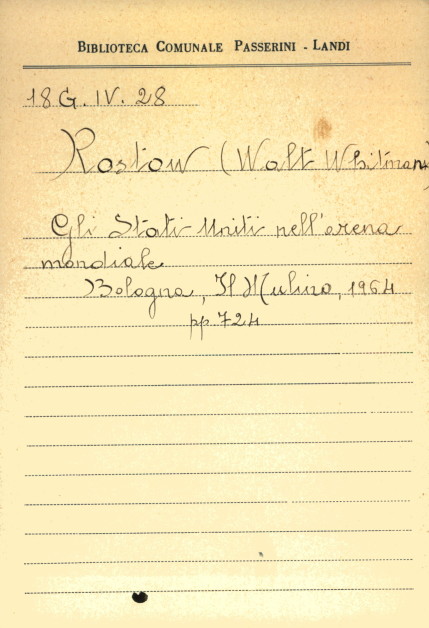 BIBLIOTECA COMUNALE PASSERINI - LANDI
18 G. IV. 28
Rostow (Walt Whitman)
Gli Stati Uniti nell'arena
mondiale
Bologna, Il Mulino, 1964
pp 724